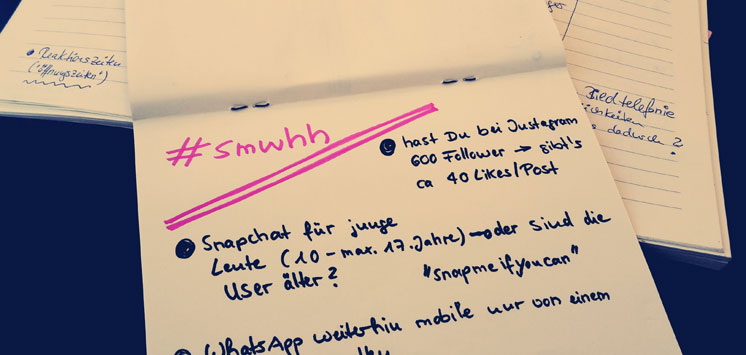 ● Reaktionszeiten
("Öffnungszeiten")
#smwhh
● hast Du bei Instagram
600 Follower → gibt's
ca 40 Likes/Post
● Snapchat für junge
Leute (10 - max. 17. Jahre) → oder sind die
User älter?
"snapmeifyoucan"
● WhatsApp weiterhin mobile nur von einem
Bildtelefonie
dadurch?